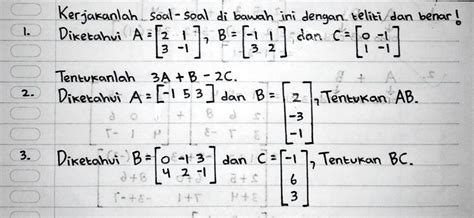 Kerjakanlah soal-soal di bawah ini dengan teliti dan benar!
1. Diketahui A = [2 1 / 3 -1], B = [-1 1 / 3 2], dan C = [0 -1 / 1 -1]
Tentukanlah 3A + B - 2C.
2. Diketahui A = [-1 5 3] dan B = [2 / -3 / -1], Tentukan AB.
3. Diketahui B = [0 -1 3 / 4 2 -1] dan C = [-1 / 6 / 3], Tentukan BC.